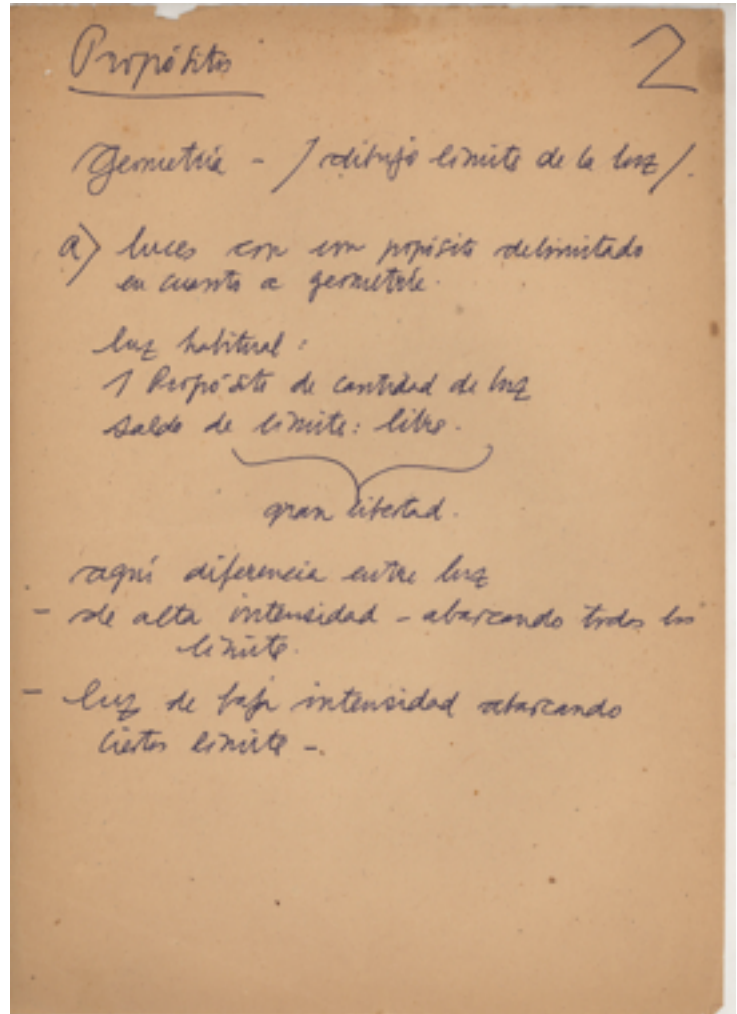 Propósitos
2
Geometría - / dibujo límite de la luz /.
a) luces con un propósito delimitado
en cuanto a geometría.
luz habitual:
1 Propósito de cantidad de luz
saldo de límite: libre.
gran libertad.
aquí diferencia entre luz
- de alta intensidad - abarcando todos los
límite.
- luz de baja intensidad abarcando
ciertos límite -.